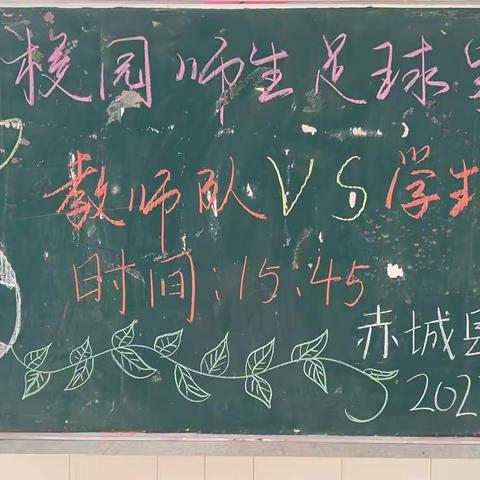 校园师生足球
教师队VS学生
时间:15:45
赤城县
202